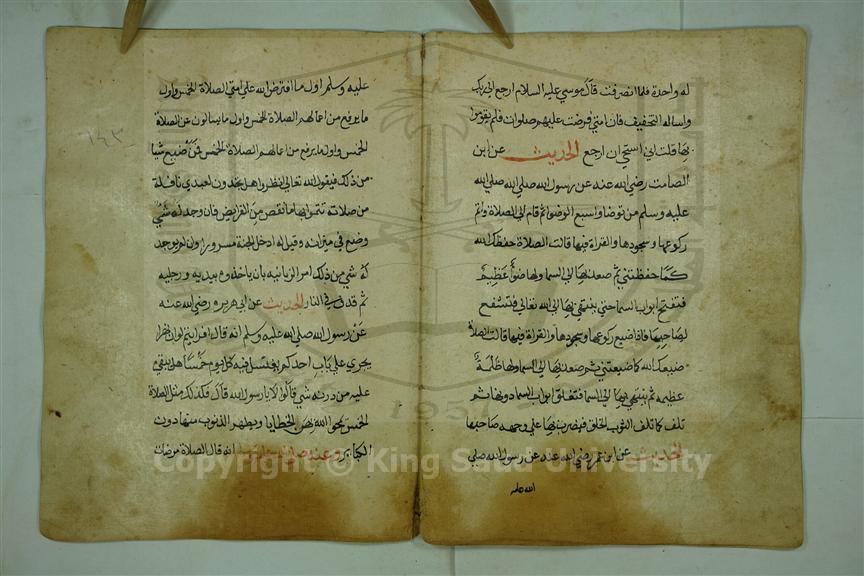 له واحدة فلما انصرفت قال موسي عليه السلام ارجع الي ربك
واساله التخفيف فان امتي فرضت عليهم صلوات فلم يقوموا
بها قلت اني استحي ان ارجع الحديث عن ابن
الصامت رضي الله عنه عن رسول الله صلي الله
عليه وسلم من توضا واسبغ الوضوء ثم قام الي الصلاة واتم
ركوعها وسجودها والقراة فيها قالت الصلاة حفظك الله
كما حفظتني ثم صعد بها الي السما ولها ضوأ عظيم
فتفتح ابواب السما حتي ينتهي بها الي الله تعالي فتشفع
لصاحبها فاذا ضيع ركوعها وسجودها والقراة فيها قالت الصلاة
ضيعك الله كما ضيعتني ثم صعد بها الي السما ولها ظلمة
عظيمه ثم ينتهي بها الي السما فتغلق ابواب السما دونها ثم
تلف كما تلف الثوب الخلق فيضرب بها علي وجه صاحبها
الحديث عن ابن عمر رضي الله عنه عن رسول الله صلي
الله عليه
عليه وسلم اول ما افترض الله علي امتي الصلاة الخمس واول
ما يرفع من اعمالهم الصلاة الخمس واول ما يسالون عن الصلاة
الخمس واول ما يرفع من اعمالهم الصلاة الخمس فمن ضيع شيا
من ذلك فيقول الله تعالي انظروا هل تجدون لعبدي نافلة
من صلاته تتمن بها ما نقص من الفرايض فان وجد له شي
وضع في ميزانه وقيل له ادخل الجنة مسرورا وان لم يوجد
له شي من ذلك امر الزبانيه بان ياخذوه بيديه ورجليه
ثم قذف في النار الحديث عن ابي هريره رضي الله عنه
عن رسول الله صلي الله عليه وسلم انه قال افرايتم لو ان نهرا
يجري علي باب احدكم يغتسل فيه كل يوم خمسا هل يبقي
عليه من درنه شي قالوا لا يا رسول الله قال فكذلك مثل الصلاة
الخمس يمحو الله بهن الخطايا ويطهر الذنوب منها دون
الكباير وعنه صلي الله عليه انه قال الصلاة مرضات
١٤٣
1957
Copyright © King Saud University